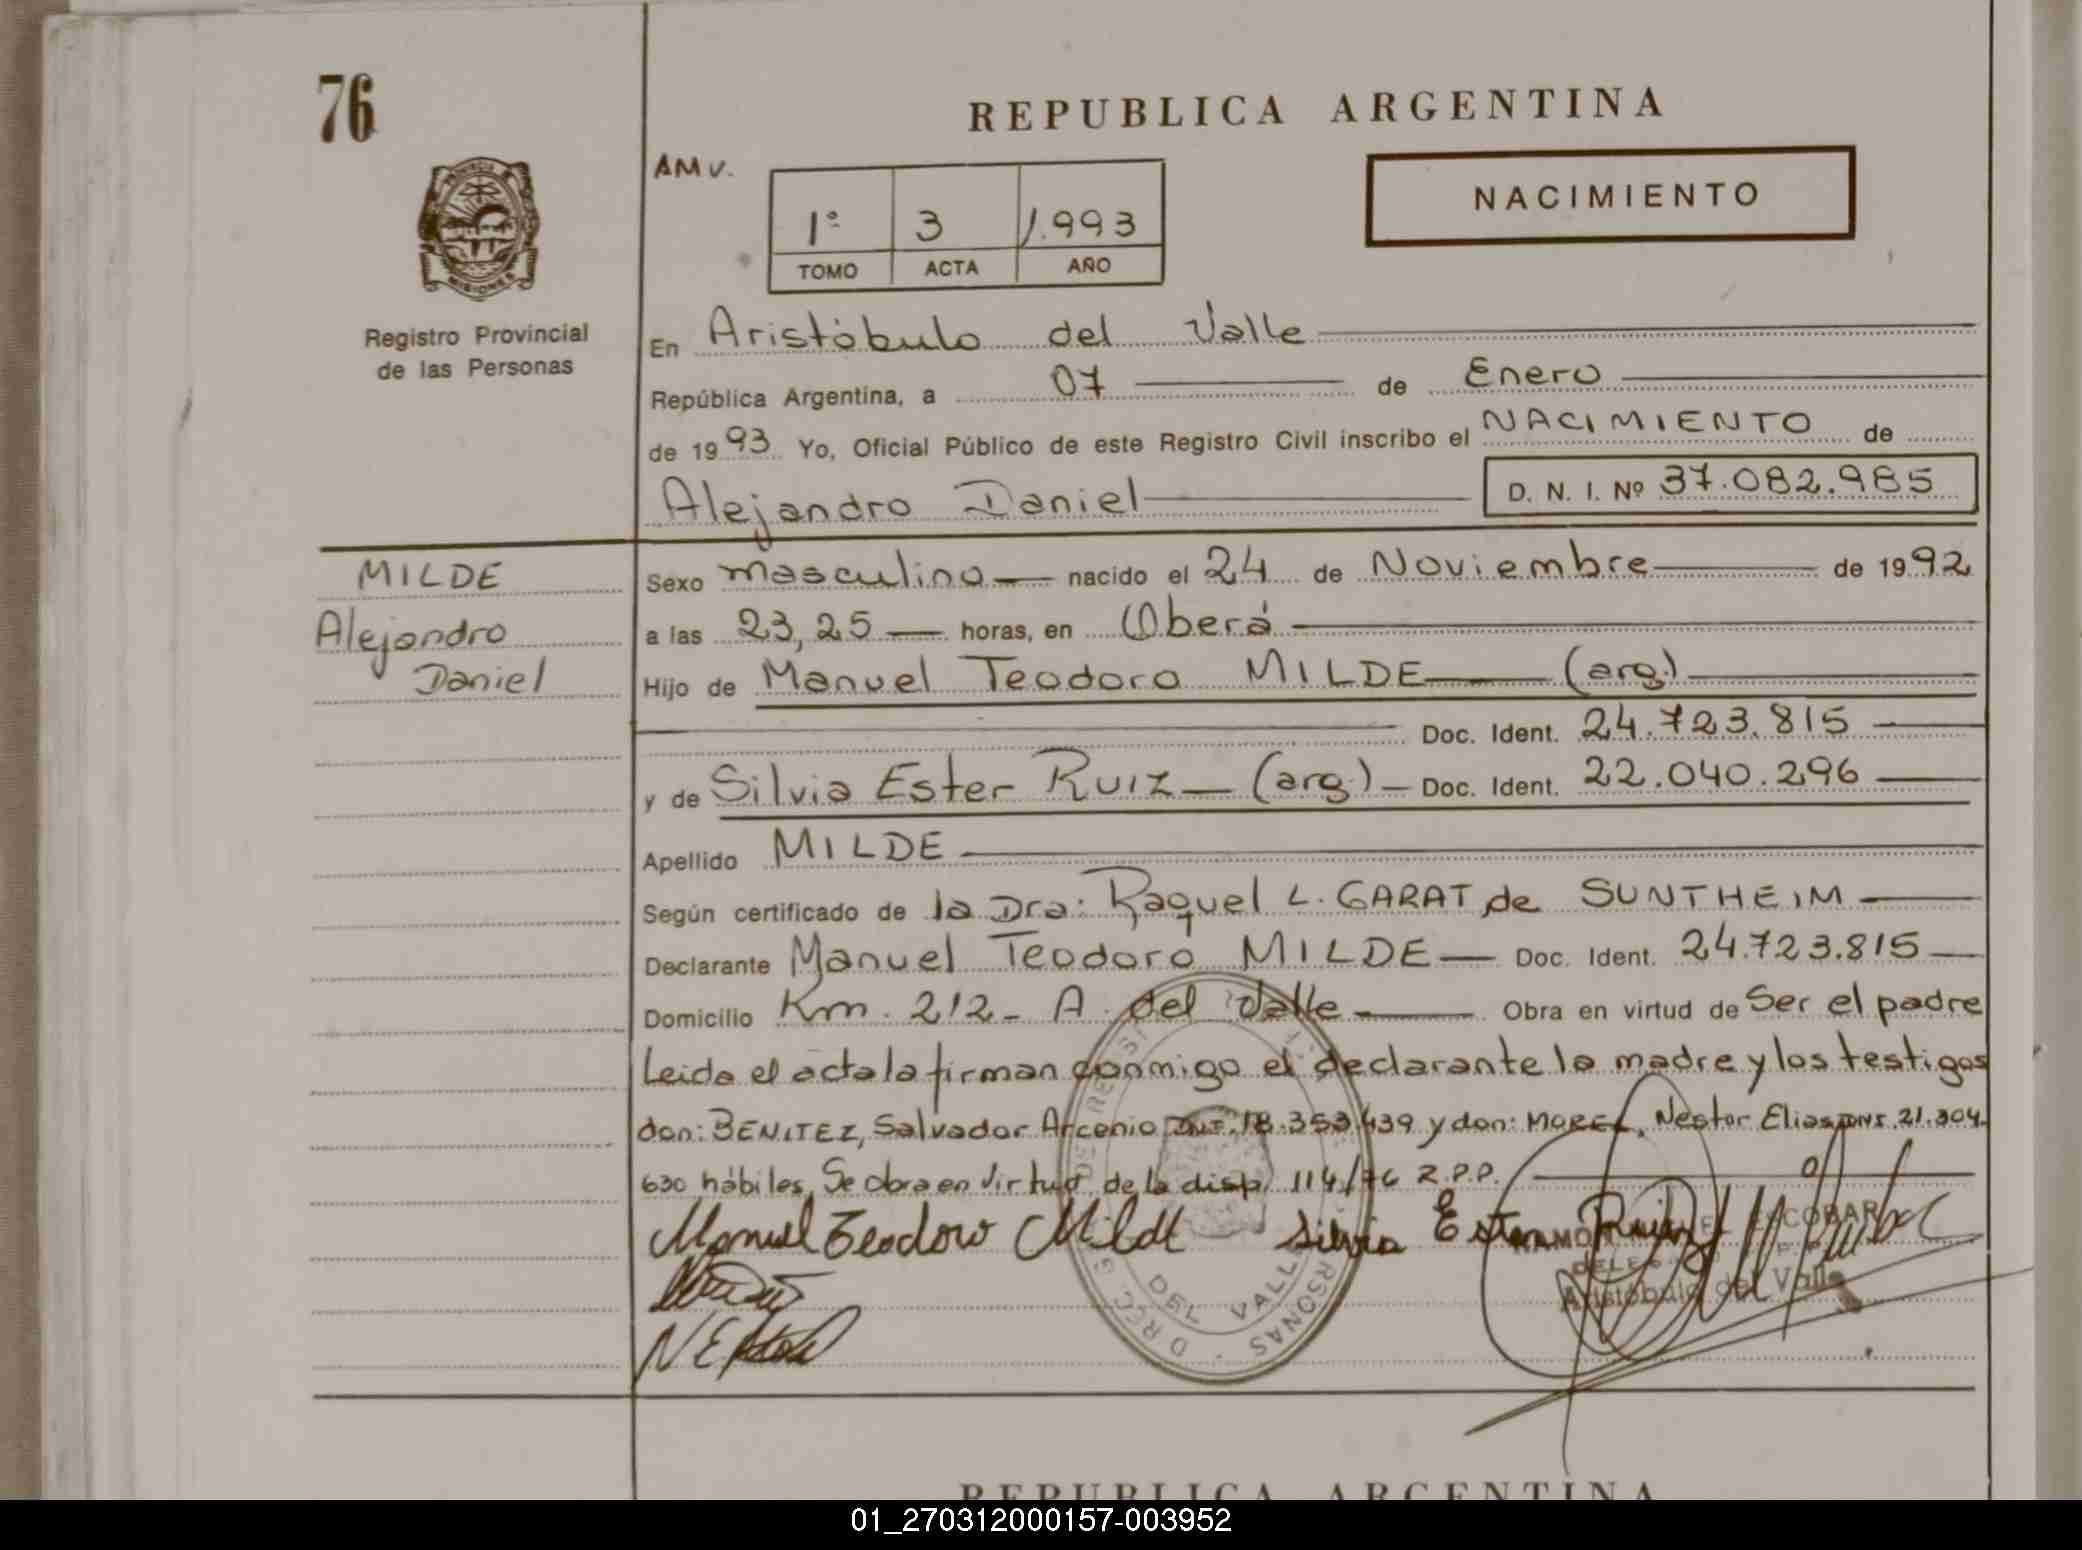 76
REPUBLICA ARGENTINA
AMV.
NACIMIENTO
1º 3 1.993
TOMO ACTA AÑO
PROVINCIA DE
MISIONES
Registro Provincial
de las Personas
En Aristóbulo del Valle
República Argentina, a 07 de Enero
de 1993 Yo, Oficial Público de este Registro Civil inscribo el NACIMIENTO de
Alejandro Daniel D. N. I. Nº 37.082.985
MILDE
Alejandro
Daniel
Sexo masculino nacido el 24 de Noviembre de 1992
a las 23,25 horas, en Oberá
Hijo de Manuel Teodoro MILDE (arg)
Doc. Ident. 24.723.815
y de Silvia Ester RUIZ (arg) Doc. Ident. 22.040.296
Apellido MILDE
Según certificado de la Dra: Raquel L. GARAT de SUNTHEIM
Declarante Manuel Teodoro MILDE Doc. Ident. 24.723.815
Domicilio Km. 212 - A. del Valle Obra en virtud de Ser el padre
Leida el acta la firman conmigo el declarante la madre y los testigos
don: BENITEZ, Salvador Arcenio DNI. 18.353.439 y don: MOREL, Nestor Elias DNI. 21.304.
630 hábiles, Se obra en virtud de la disp. 114/76 R.P.P.
Manuel Teodoro Milde Silvia Ester Ruiz
ESCOBAR
Aristóbulo del Valle
DEL VALLE
REPUBLICA ARGENTINA
01_270312000157-003952